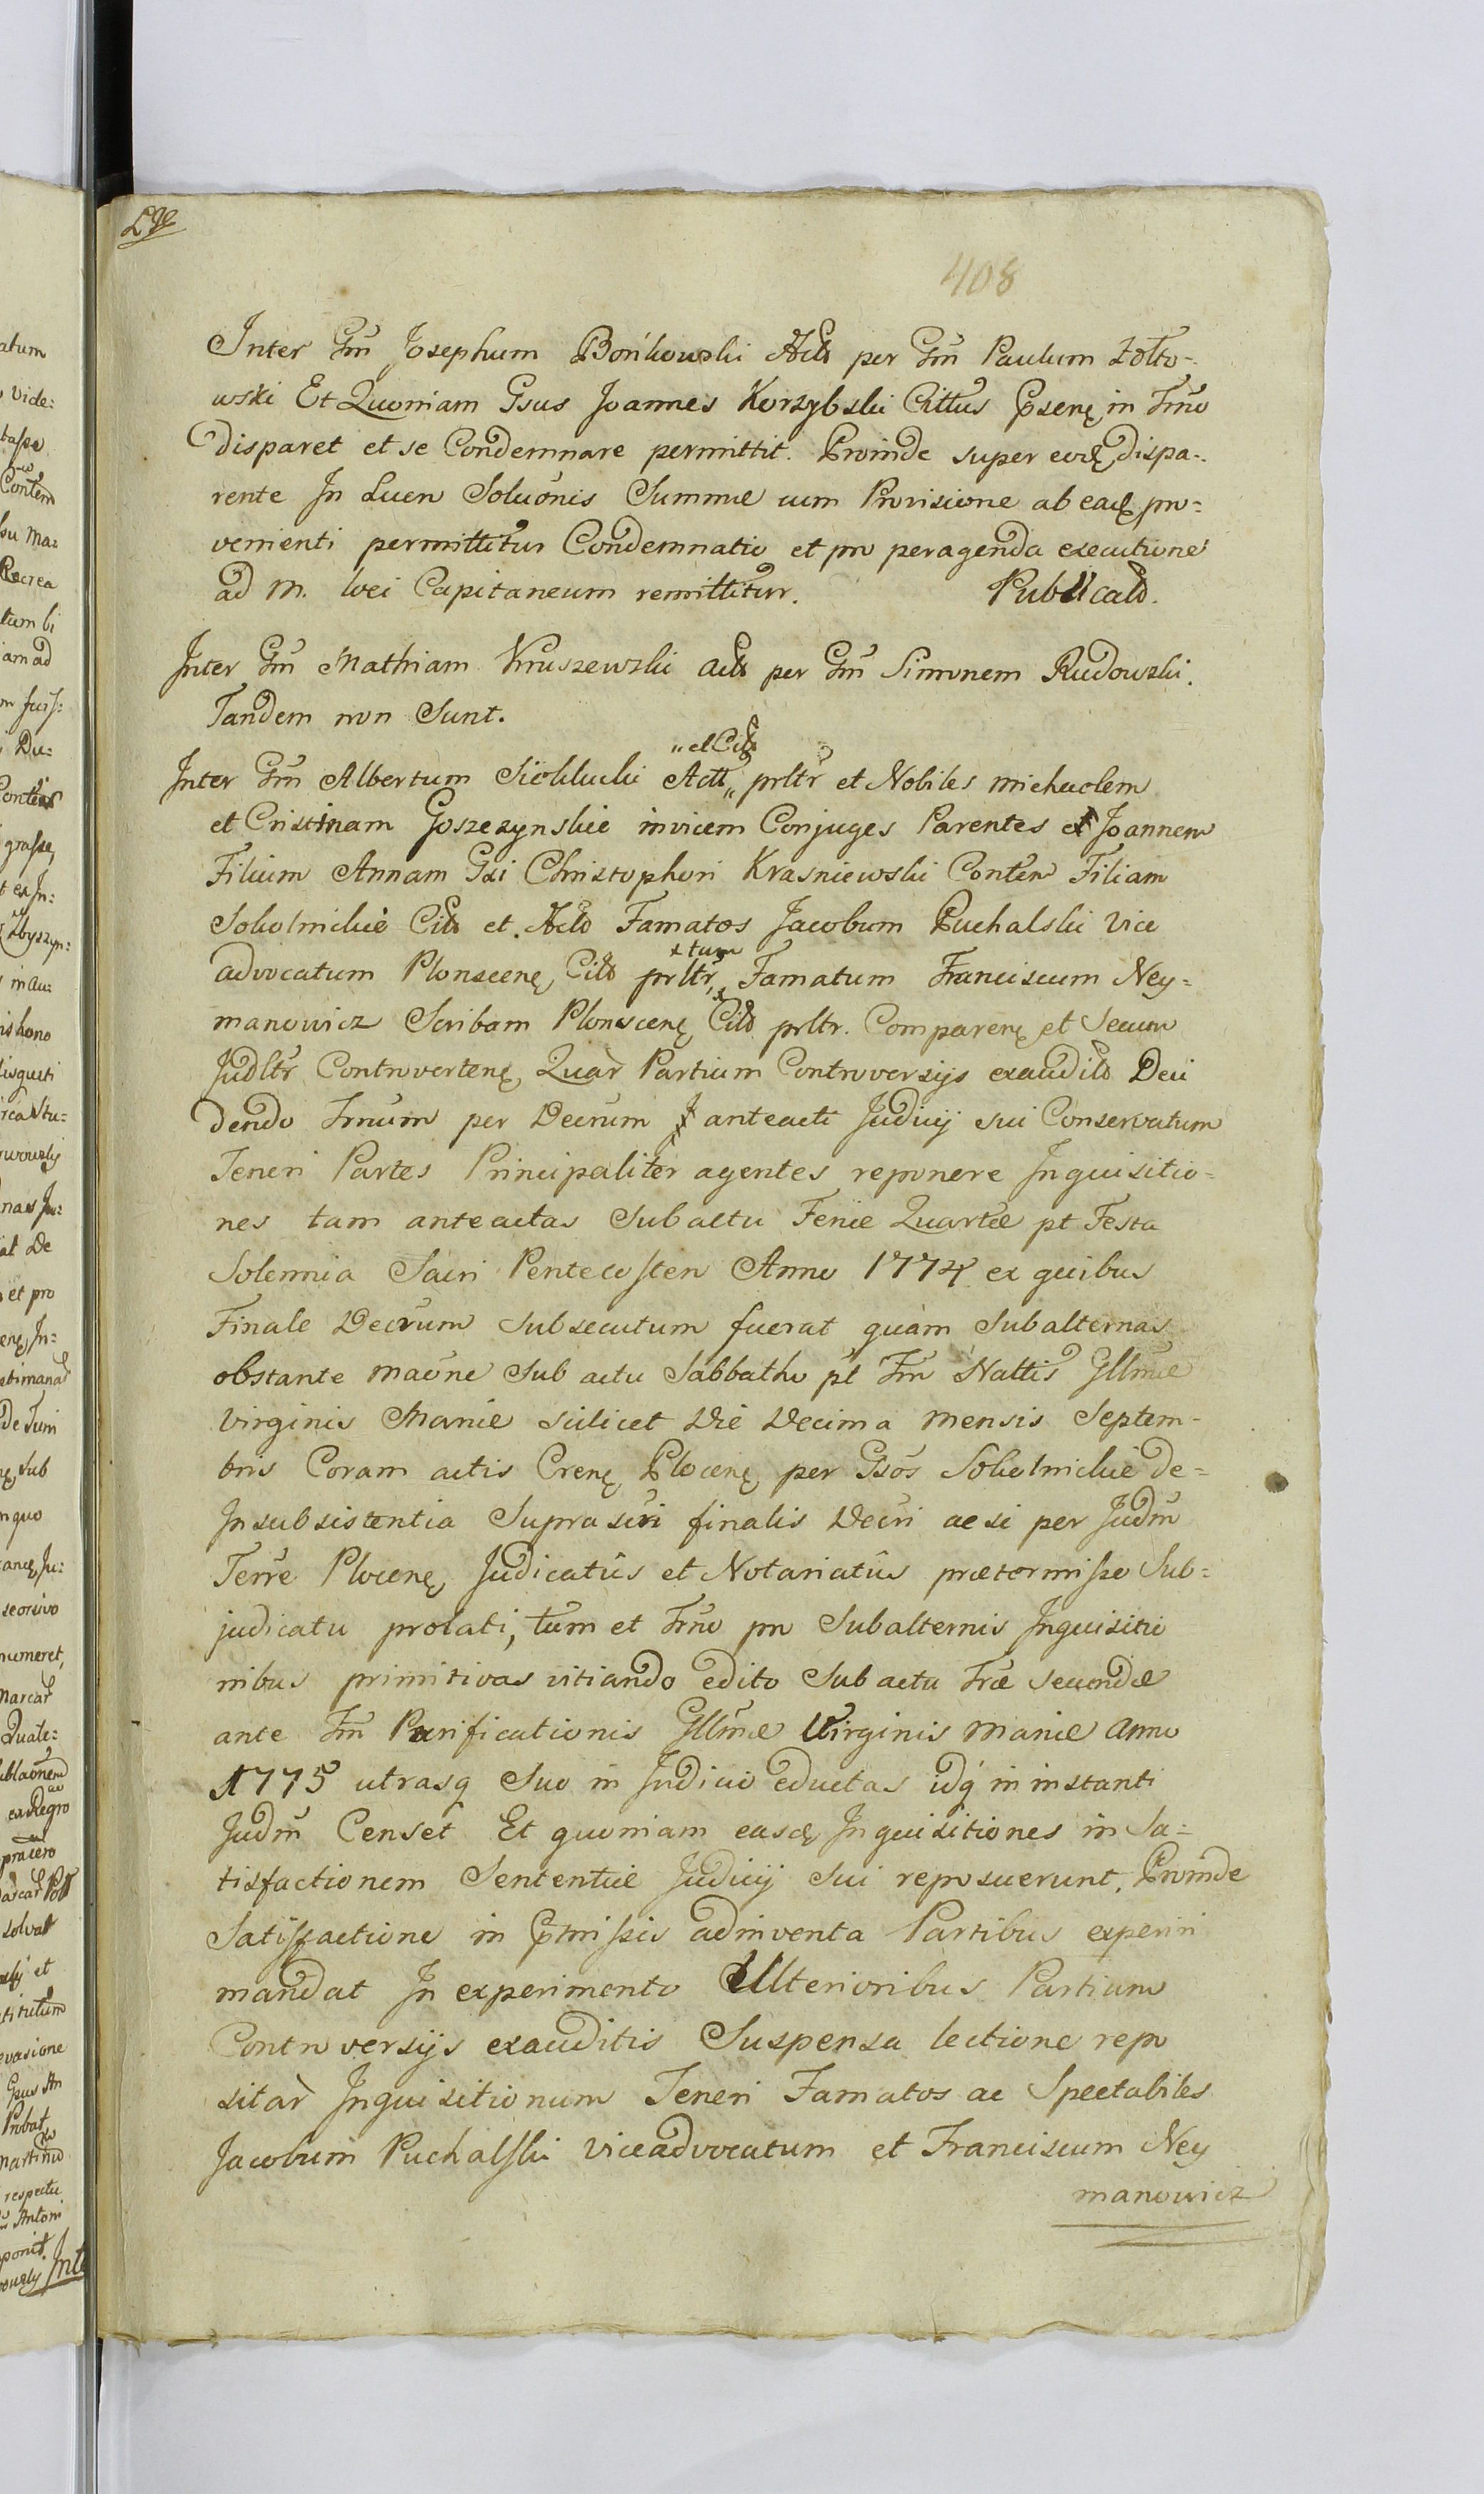 408
Inter Gm̃ Josephum Bońkowski Actõ per Gm̃ Paulum Żółto-
wski Et Quoniam Gsus Joannes Korzybski Cittus Psenę in Trñio
disparet et se Condemnare permittit. Proinde super eodę dispa-
rente In Luen Soluónis Summæ cum Provisione ab eadę pro=
venienti permittitur Condemnatio et pro peragenda executione
ad M. loci Capitaneum remittitur. Publicatõ.
Inter Gm̃ Mathiam Kruszewski Actõ per Gm̃ Simonem Rudowski.
Tandem non Sunt.
"et Citõ
Inter Gm̃ Albertum Actt" prltr̃ et Nobiles Michaelem
et Cristinam Goszczynskie invicem Conjuges Parentes et Joannem
Filium Annam Gsi Christophori Krasniewski Conten Filiam
Sokolnickie Citõ et Actõ Famatos Jacobum Puchalski Vice
x tum
advocatum Plonscenę Citõ prltr̃, Famatum Franciscum Ney=
manowicz Scribam Plonscenę Citõ prltr. Comparenę et Secum
Judltr̃ Controvertenę Quar̃ Partium Controversijs exauditõ Deci
dendo Trñum per Decrum anteacti Judicij sui Conservatum
Teneri Partes Principaliter agentes reponere Inquisitio-
nes tam anteactas Sub actu Feriæ Quartæ pt Festa
Solennia Sacri Pentecosten Anno 1774 ex quibus
Finale Decrum subsecutum fuerat quàm Subalternas
obstante maõne Sub actu Sabbatho pt Fm̃ Nattis Gllmæ
Virginis Mariæ scilicet Die Decima Mensis Septem-
bris Coram actis Crenę Plocenę per Gsos Sokolnickie de=
Insubsistentia Suprascri finalis Decri ac si per Judm̃
Terre Plocenę Judicatûs et Notariatûs prætermisso Sub=
judicatu prolati, tum et Trño pro Subalternis Inquisitio
nibus primitivas vitiando edito Sub actu Fræ Secundæ
ante Fm̃ Purificationis Gllmæ Virginis Mariæ Anno
1775 utrasq Suo in Judicio eductas idq́ in instanti
Judm̃ Censet Et quoniam easdę Inquisitiones in Sa=
tisfactionem Sententiæ Judicij Sui reposuerunt, Proinde
Satisfactione in Pmissis adinventa Partibus experiri
mandat In experimento Ulterioribus Partium
Controversijs exauditis Suspensa lectione repo
sitar̀ Inquisitionum Teneri Famatos ac Spectabiles
Jacobum Puchalski Viceadvocatum et Franciscum Ney
manowicz